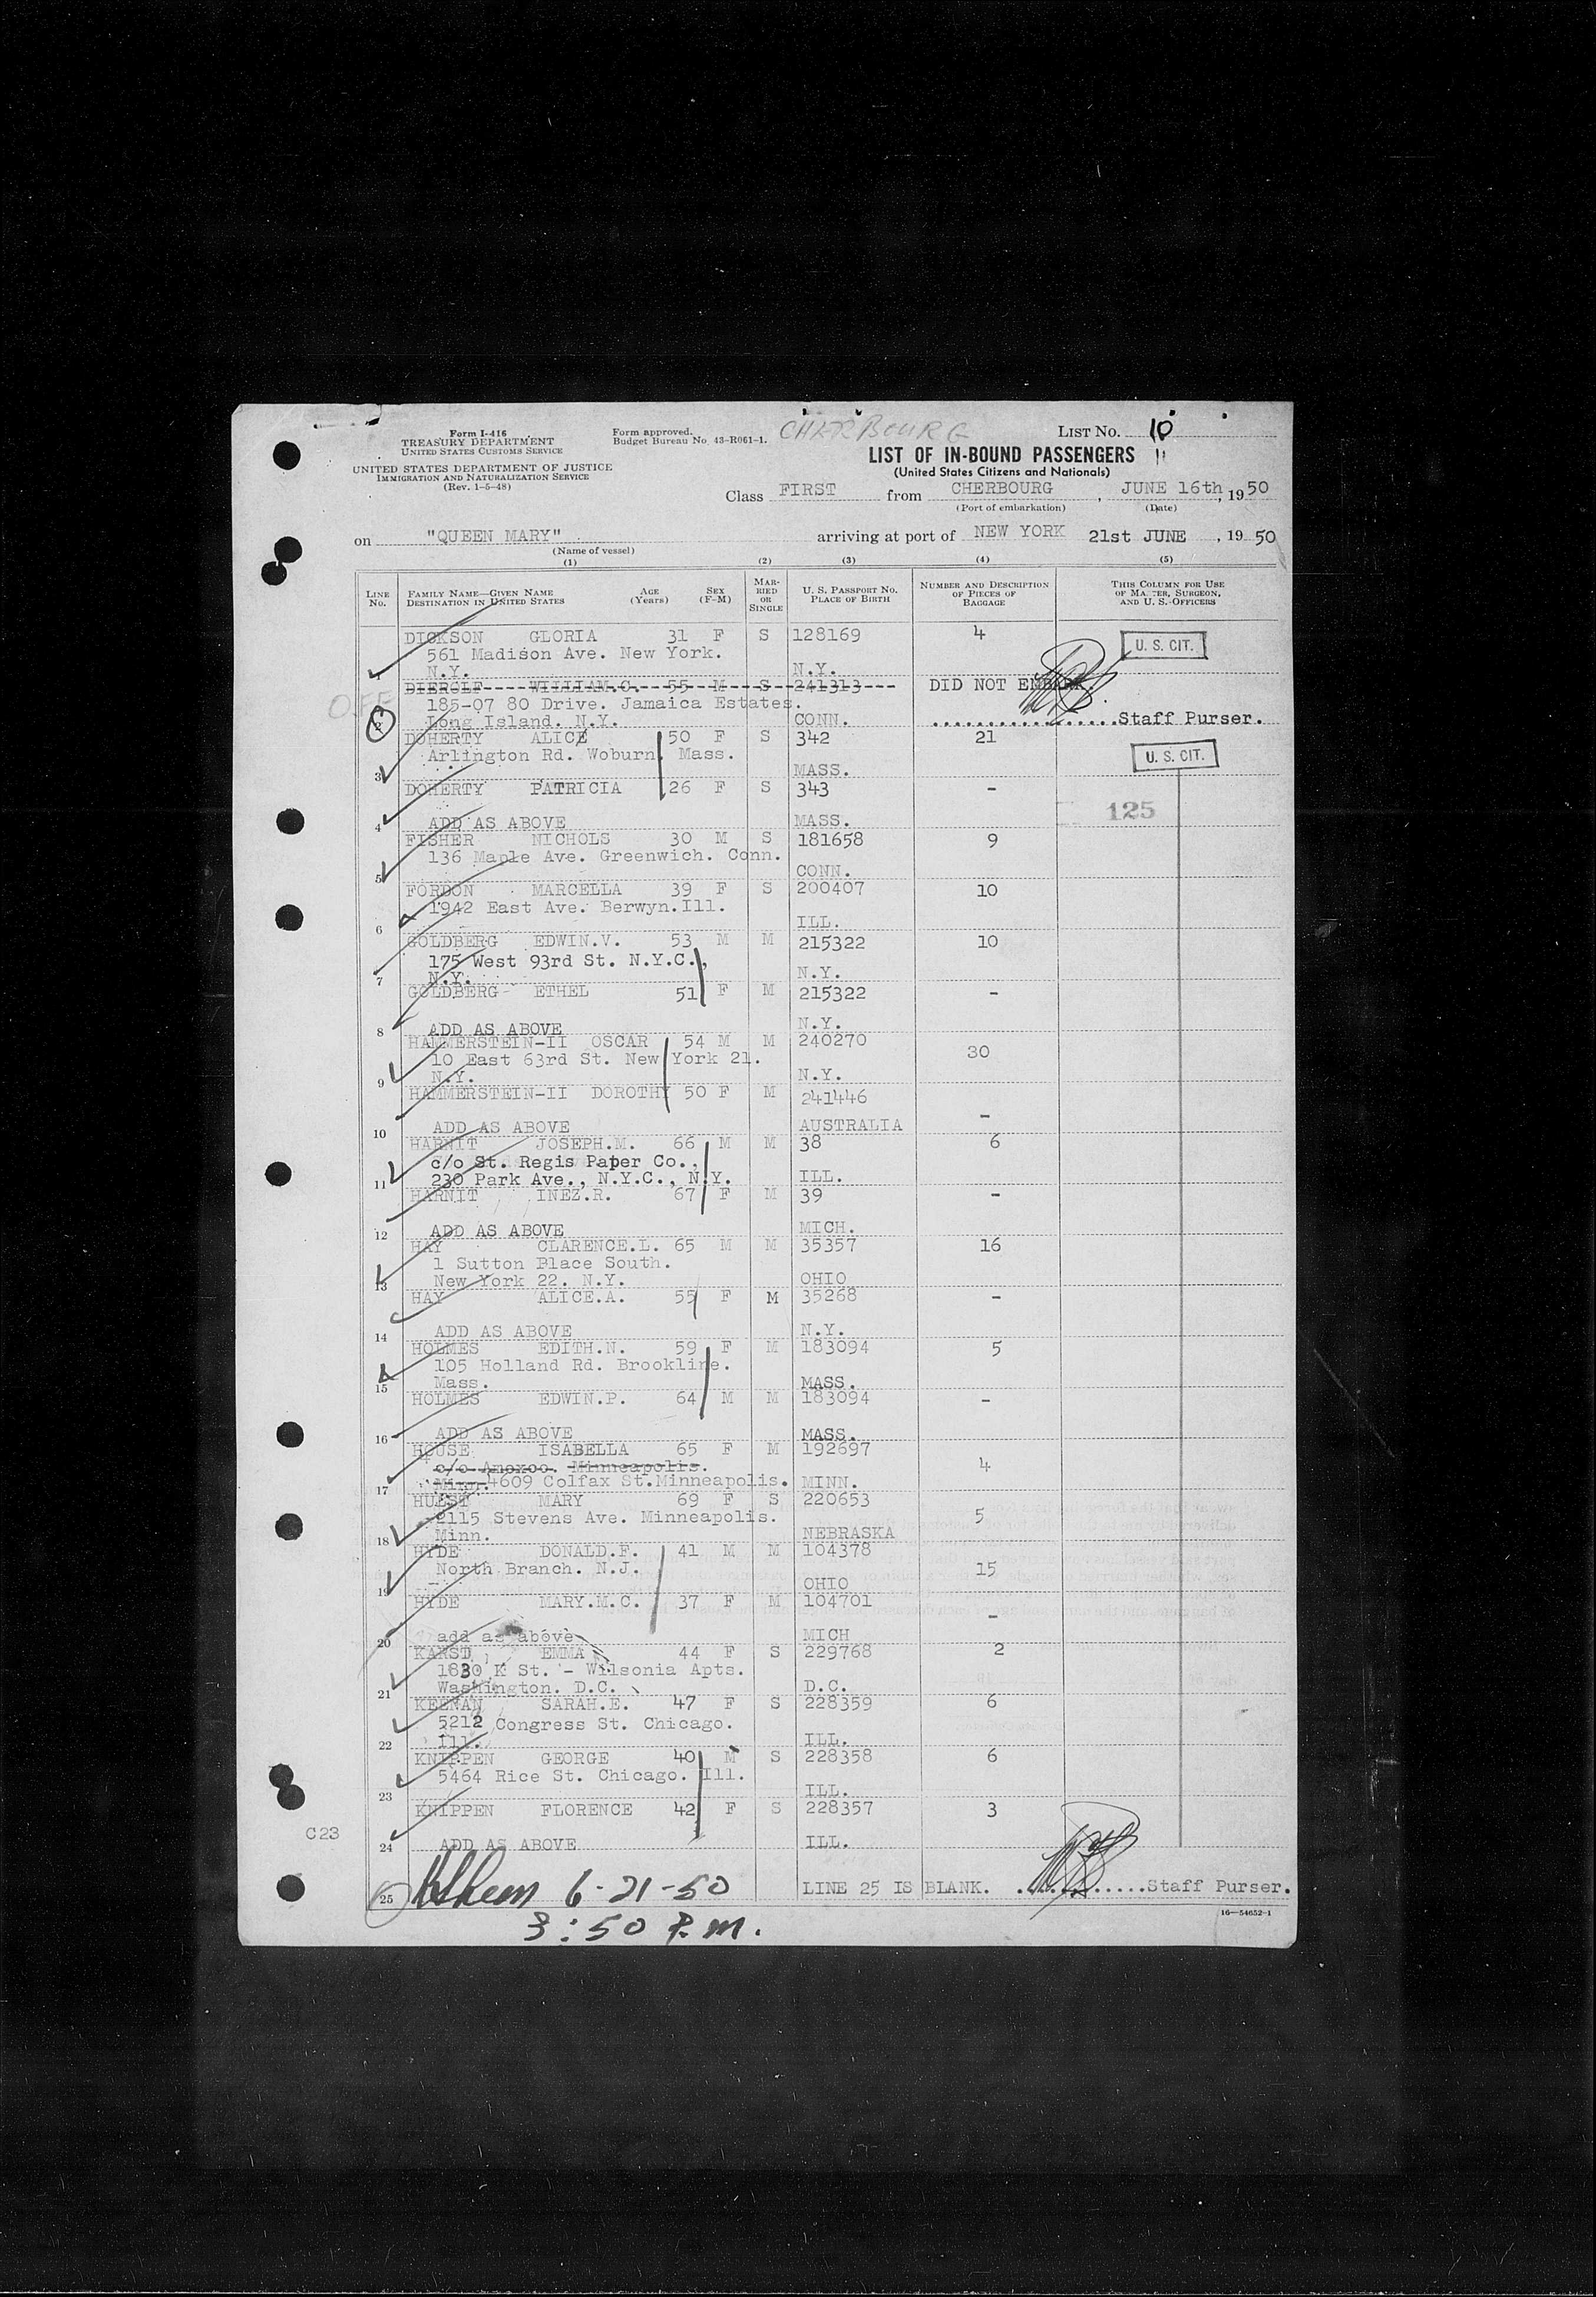 Form I-416
TREASURY DEPARTMENT
UNITED STATES CUSTOMS SERVICE
UNITED STATES DEPARTMENT OF JUSTICE
IMMIGRATION AND NATURALIZATION SERVICE
(Rev. 1-5-48)
Form approved.
Budget Bureau No. 43-R061-1.
CHERBOURG
LIST NO. 10
11
LIST OF IN-BOUND PASSENGERS
(United States Citizens and Nationals)
Class FIRST from CHERBOURG, JUNE 16th, 1950
(Port of embarkation) (Date)
on "QUEEN MARY" arriving at port of NEW YORK 21st JUNE, 1950
(Name of vessel)
(1) (2) (3) (4) (5)
LINE NO. FAMILY NAME—GIVEN NAME DESTINATION IN UNITED STATES AGE (Years) SEX (F-M) MARRIED OR SINGLE U. S. PASSPORT NO. PLACE OF BIRTH NUMBER AND DESCRIPTION OF PIECES OF BAGGAGE THIS COLUMN FOR USE OF MASTER, SURGEON, AND U. S. OFFICERS
DICKSON GLORIA 31 F S 128169 4
561 Madison Ave. New York. U. S. CIT.
N.Y. N.Y.
DIEROLF WILLIAM.C. 55 M S 241313 DID NOT EMBARK.
185-07 80 Drive. Jamaica Estates.
Long Island. N.Y. CONN. Staff Purser.
DOHERTY ALICE 50 F S 342 21
Arlington Rd. Woburn. Mass. U. S. CIT.
3 MASS.
DOHERTY PATRICIA 26 F S 343 -
125
4 ADD AS ABOVE MASS.
FISHER NICHOLS 30 M S 181658 9
136 Maple Ave. Greenwich. Conn.
5 CONN.
FORDON MARCELLA 39 F S 200407 10
1942 East Ave. Berwyn.Ill.
6 ILL.
GOLDBERG EDWIN.V. 53 M M 215322 10
175 West 93rd St. N.Y.C.,
7 N.Y. N.Y.
GOLDBERG ETHEL 51 F M 215322 -
8 ADD AS ABOVE N.Y.
HAMMERSTEIN-II OSCAR 54 M M 240270 30
10 East 63rd St. New York 21.
9 N.Y. N.Y.
HAMMERSTEIN-II DOROTHY 50 F M 241446 -
10 ADD AS ABOVE AUSTRALIA
HARNIT JOSEPH.M. 66 M M 38 6
c/o St. Regis Paper Co.,
11 230 Park Ave., N.Y.C., N.Y. ILL.
HARNIT INEZ.R. 67 F M 39 -
12 ADD AS ABOVE MICH.
HAY CLARENCE.L. 65 M M 35357 16
1 Sutton Place South.
13 New York 22. N.Y. OHIO
HAY ALICE.A. 55 F M 35268 -
14 ADD AS ABOVE N.Y.
HOLMES EDITH.N. 59 F M 183094 5
105 Holland Rd. Brookline.
15 Mass. MASS.
HOLMES EDWIN.P. 64 M M 183094 -
16 ADD AS ABOVE MASS.
HOUSE ISABELLA 65 F M 192697 4
c/o Amexco. Minneapolis.
17 Minn. 4609 Colfax St.Minneapolis. MINN.
HURST MARY 69 F S 220653 5
2115 Stevens Ave. Minneapolis.
18 Minn. NEBRASKA
HYDE DONALD.F. 41 M M 104378 15
North Branch. N.J.
19 OHIO
HYDE MARY.M.C. 37 F M 104701 -
20 add as above MICH
KARST EMMA 44 F S 229768 2
1830 K St. - Wilsonia Apts.
21 Washington. D.C. D.C.
KEENAN SARAH.E. 47 F S 228359 6
5212 Congress St. Chicago.
22 Ill. ILL.
KNIPPEN GEORGE 40 M S 228358 6
5464 Rice St. Chicago. Ill.
23 ILL.
KNIPPEN FLORENCE 42 F S 228357 3
C23
24 ADD AS ABOVE ILL.
25 6-21-50 LINE 25 IS BLANK. Staff Purser.
3:50 P.M.
16—54652-1